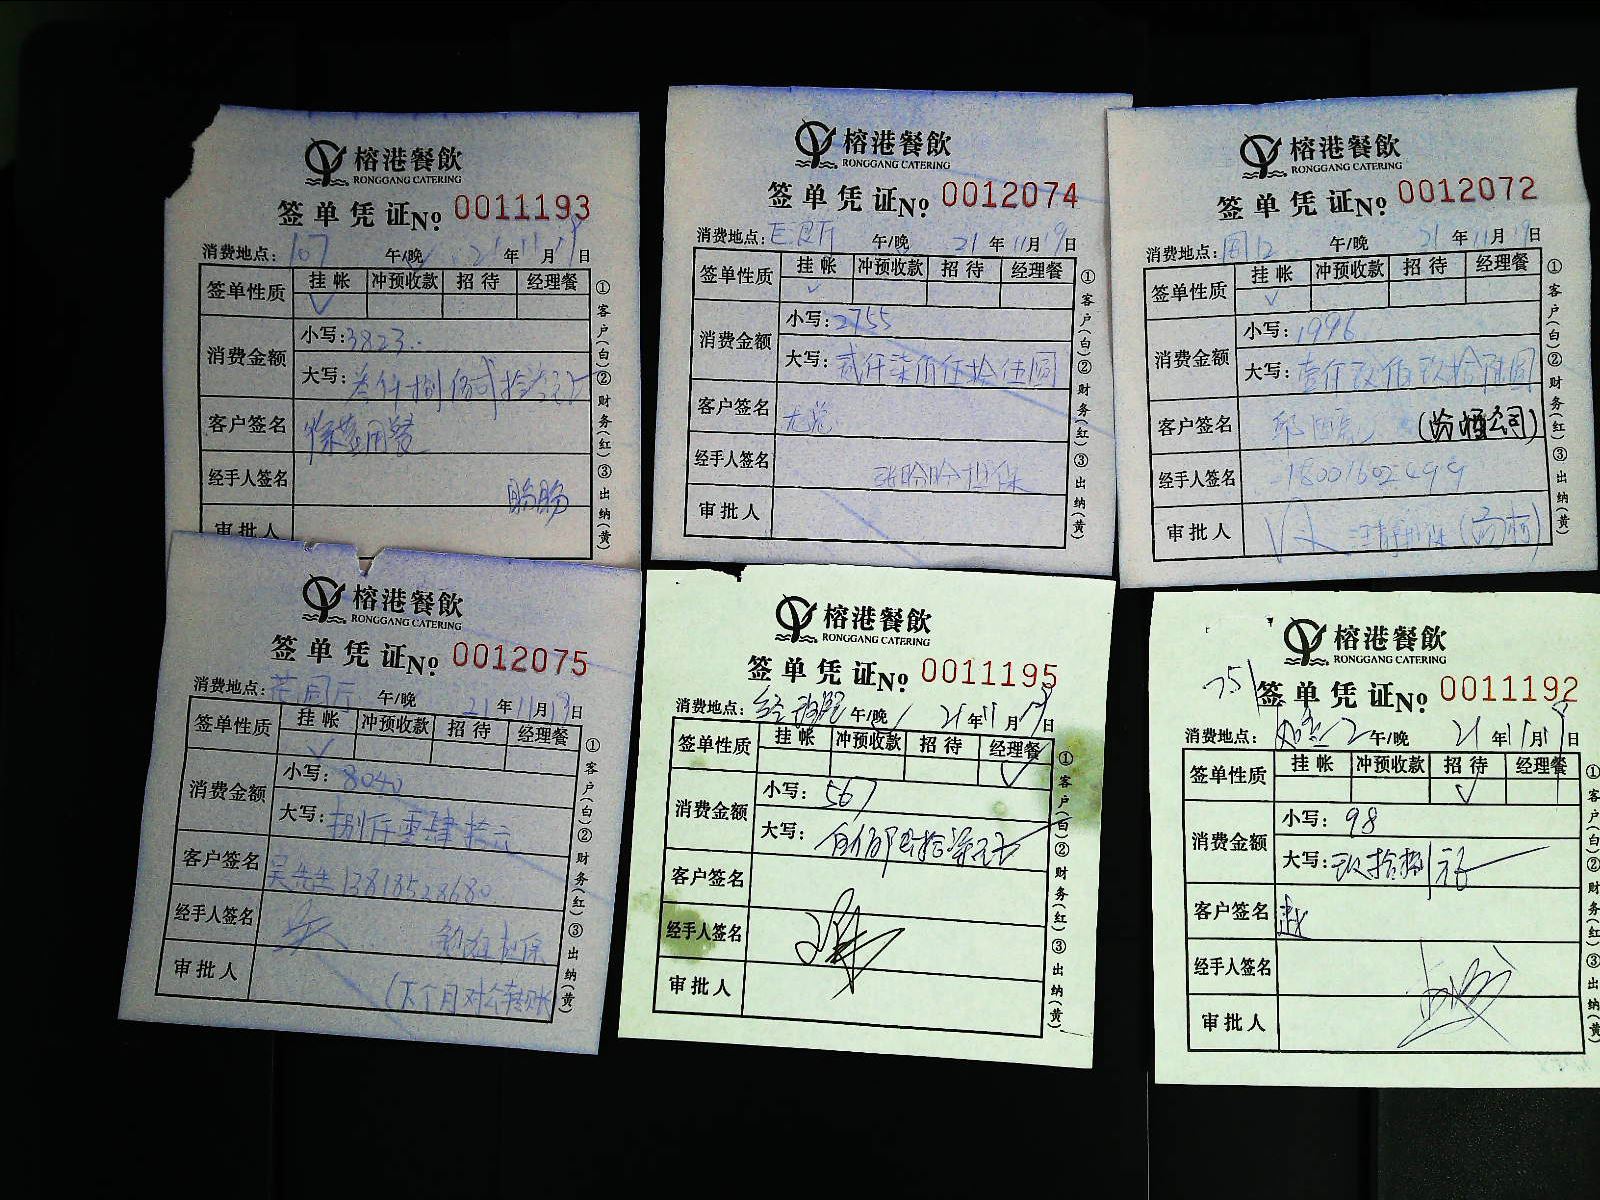 榕港餐飲
RONGGANG CATERING
签单凭证No 0011193
消费地点: 107 午/晚 21年11月19日
签单性质 挂帐 冲预收款 招待 经理餐
✓
消费金额 小写: 3823
大写: 叁仟捌佰贰拾叁元
客户签名
经手人签名
审批人
①客户(白)②财务(红)③出纳(黄)
榕港餐飲
RONGGANG CATERING
签单凭证No 0012074
消费地点: 午/晚 21年11月19日
签单性质 挂帐 冲预收款 招待 经理餐
✓
消费金额 小写: 2755
大写: 贰仟柒佰伍拾伍圆
客户签名
经手人签名 张盼盼担保
审批人
①客户(白)②财务(红)③出纳(黄)
榕港餐飲
RONGGANG CATERING
签单凭证No 0012072
消费地点: 周12 午/晚 21年11月19日
签单性质 挂帐 冲预收款 招待 经理餐
✓
消费金额 小写: 1996
大写: 壹仟玖佰玖拾陆圆
客户签名
经手人签名 18001602499
审批人
①客户(白)②财务(红)③出纳(黄)
榕港餐飲
RONGGANG CATERING
签单凭证No 0012075
消费地点: 午/晚 21年11月19日
签单性质 挂帐 冲预收款 招待 经理餐
✓
消费金额 小写: 8040
大写: 捌仟零肆拾元
客户签名 吴先生 13818528680
经手人签名 担保
审批人 (下个月对公转账
①客户(白)②财务(红)③出纳(黄)
榕港餐飲
RONGGANG CATERING
签单凭证No 0011195
消费地点: 午/晚 21年11月19日
签单性质 挂帐 冲预收款 招待 经理餐
✓
消费金额 小写: 567
大写: 伍佰陆拾柒元
客户签名
经手人签名
审批人
①客户(白)②财务(红)③出纳(黄)
榕港餐飲
RONGGANG CATERING
签单凭证No 0011192
消费地点: 午/晚 21年11月19日
签单性质 挂帐 冲预收款 招待 经理餐
✓
消费金额 小写: 98
大写: 玖拾捌元
客户签名
经手人签名
审批人
①客户(白)②财务(红)③出纳(黄)